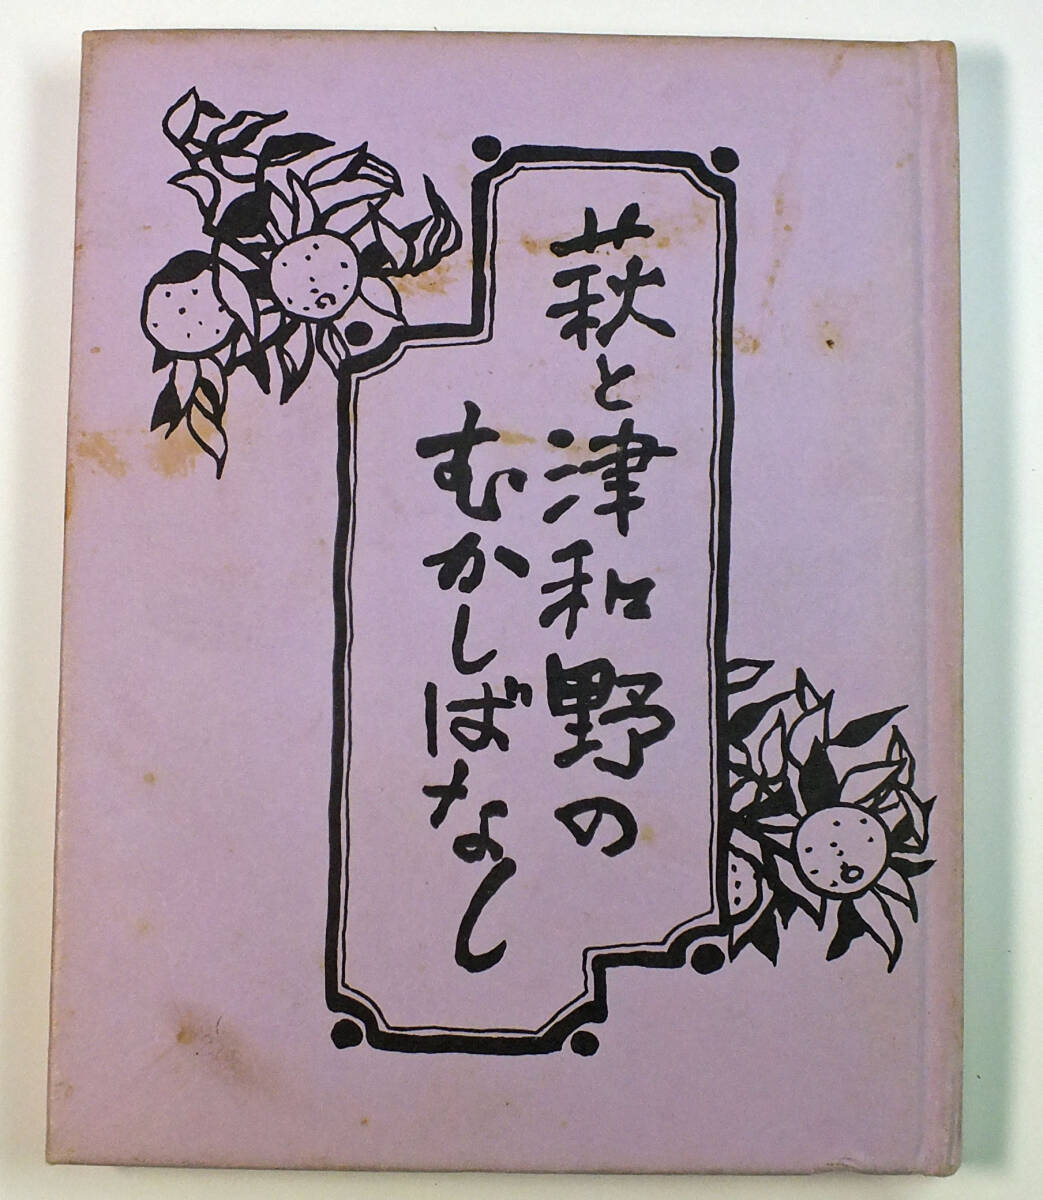 萩と津和野の
むかしばなし